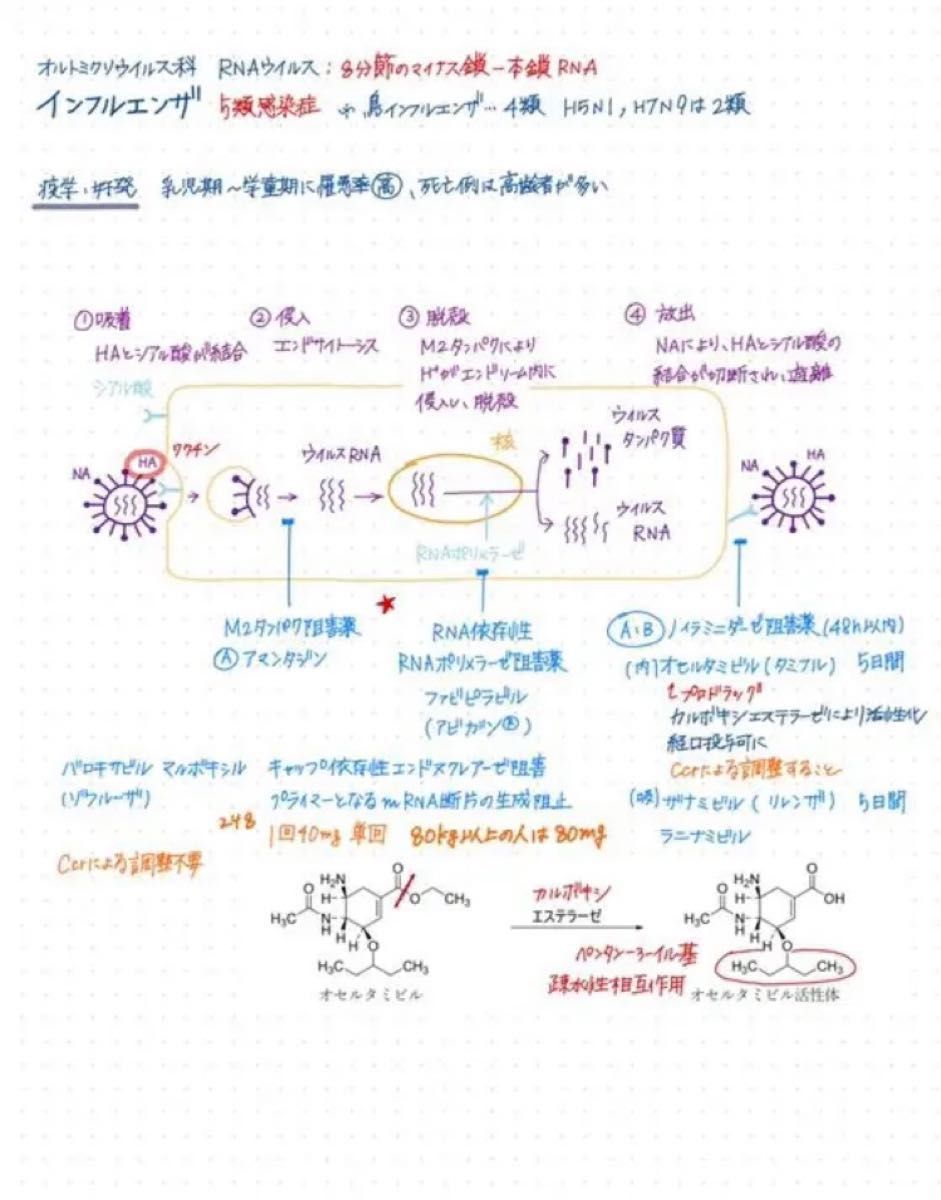 オルトミクソウイルス科 RNAウイルス：8分節のマイナス鎖一本鎖RNA
インフルエンザ 5類感染症 ※鳥インフルエンザ…4類 H5N1, H7N9は2類
疫学・好発 乳児期～学童期に罹患率高、死亡例は高齢者が多い
①吸着
HAとシアル酸が結合
②侵入
エンドサイトーシス
③脱殻
M2タンパクにより
H⁺がエンドソーム内に
侵入し、脱殻
④放出
NAにより、HAとシアル酸の
結合が切断され、遊離
シアル酸
NA
HA
ワクチン
ウイルスRNA
核
RNAポリメラーゼ
ウイルス
タンパク質
ウイルス
RNA
NA
HA
M2タンパク阻害薬
Ⓐアマンタジン
★
RNA依存性
RNAポリメラーゼ阻害薬
ファビピラビル
(アビガン®)
A・B ノイラミニダーゼ阻害薬(48h以内)
(内)オセルタミビル(タミフル) 5日間
プロドラッグ
カルボキシエステラーゼにより活性化
経口投与可に
Ccrによる調整すること
(吸)ザナミビル(リレンザ) 5日間
ラニナミビル
バロキサビル マルボキシル キャップ依存性エンドヌクレアーゼ阻害
(ゾフルーザ) プライマーとなるmRNA断片の生成阻止
248
1回40mg 単回 80kg以上の人は80mg
Ccrによる調整不要
H₂N
O
O
CH₃
H
O
H₃C
N
H
H
H
O
H₃C
CH₃
オセルタミビル
カルボキシ
エステラーゼ
ペンタン-3-イル基
疎水性相互作用
H₂N
O
OH
H
O
H₃C
N
H
H
H
O
H₃C
CH₃
オセルタミビル活性体